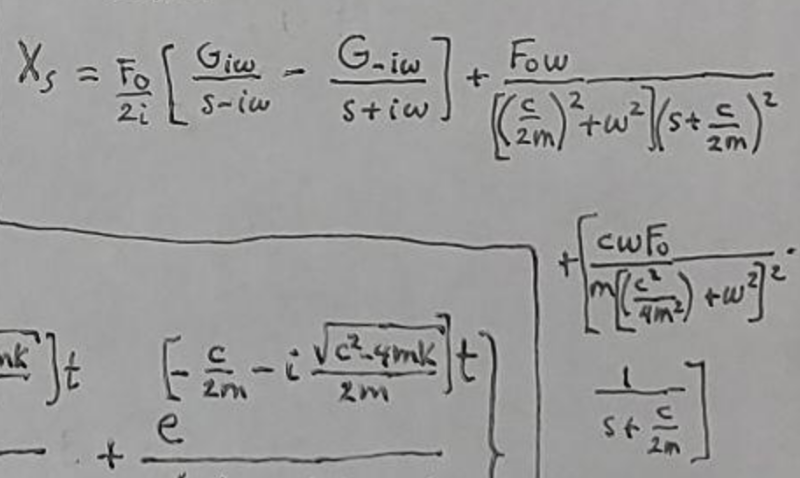 X_s = F_0/2i [ G_iω/(s-iω) - G_-iω/(s+iω) ] + F_0ω/([(c/2m)^2+ω^2](s+c/2m)^2)
+ [ cωF_0/(m[(c^2/4m^2)+ω^2]^2) ·
1/(s+c/2m) ]
mk ]t [-c/2m - i √(c^2-4mk)/2m ]t }
+ e